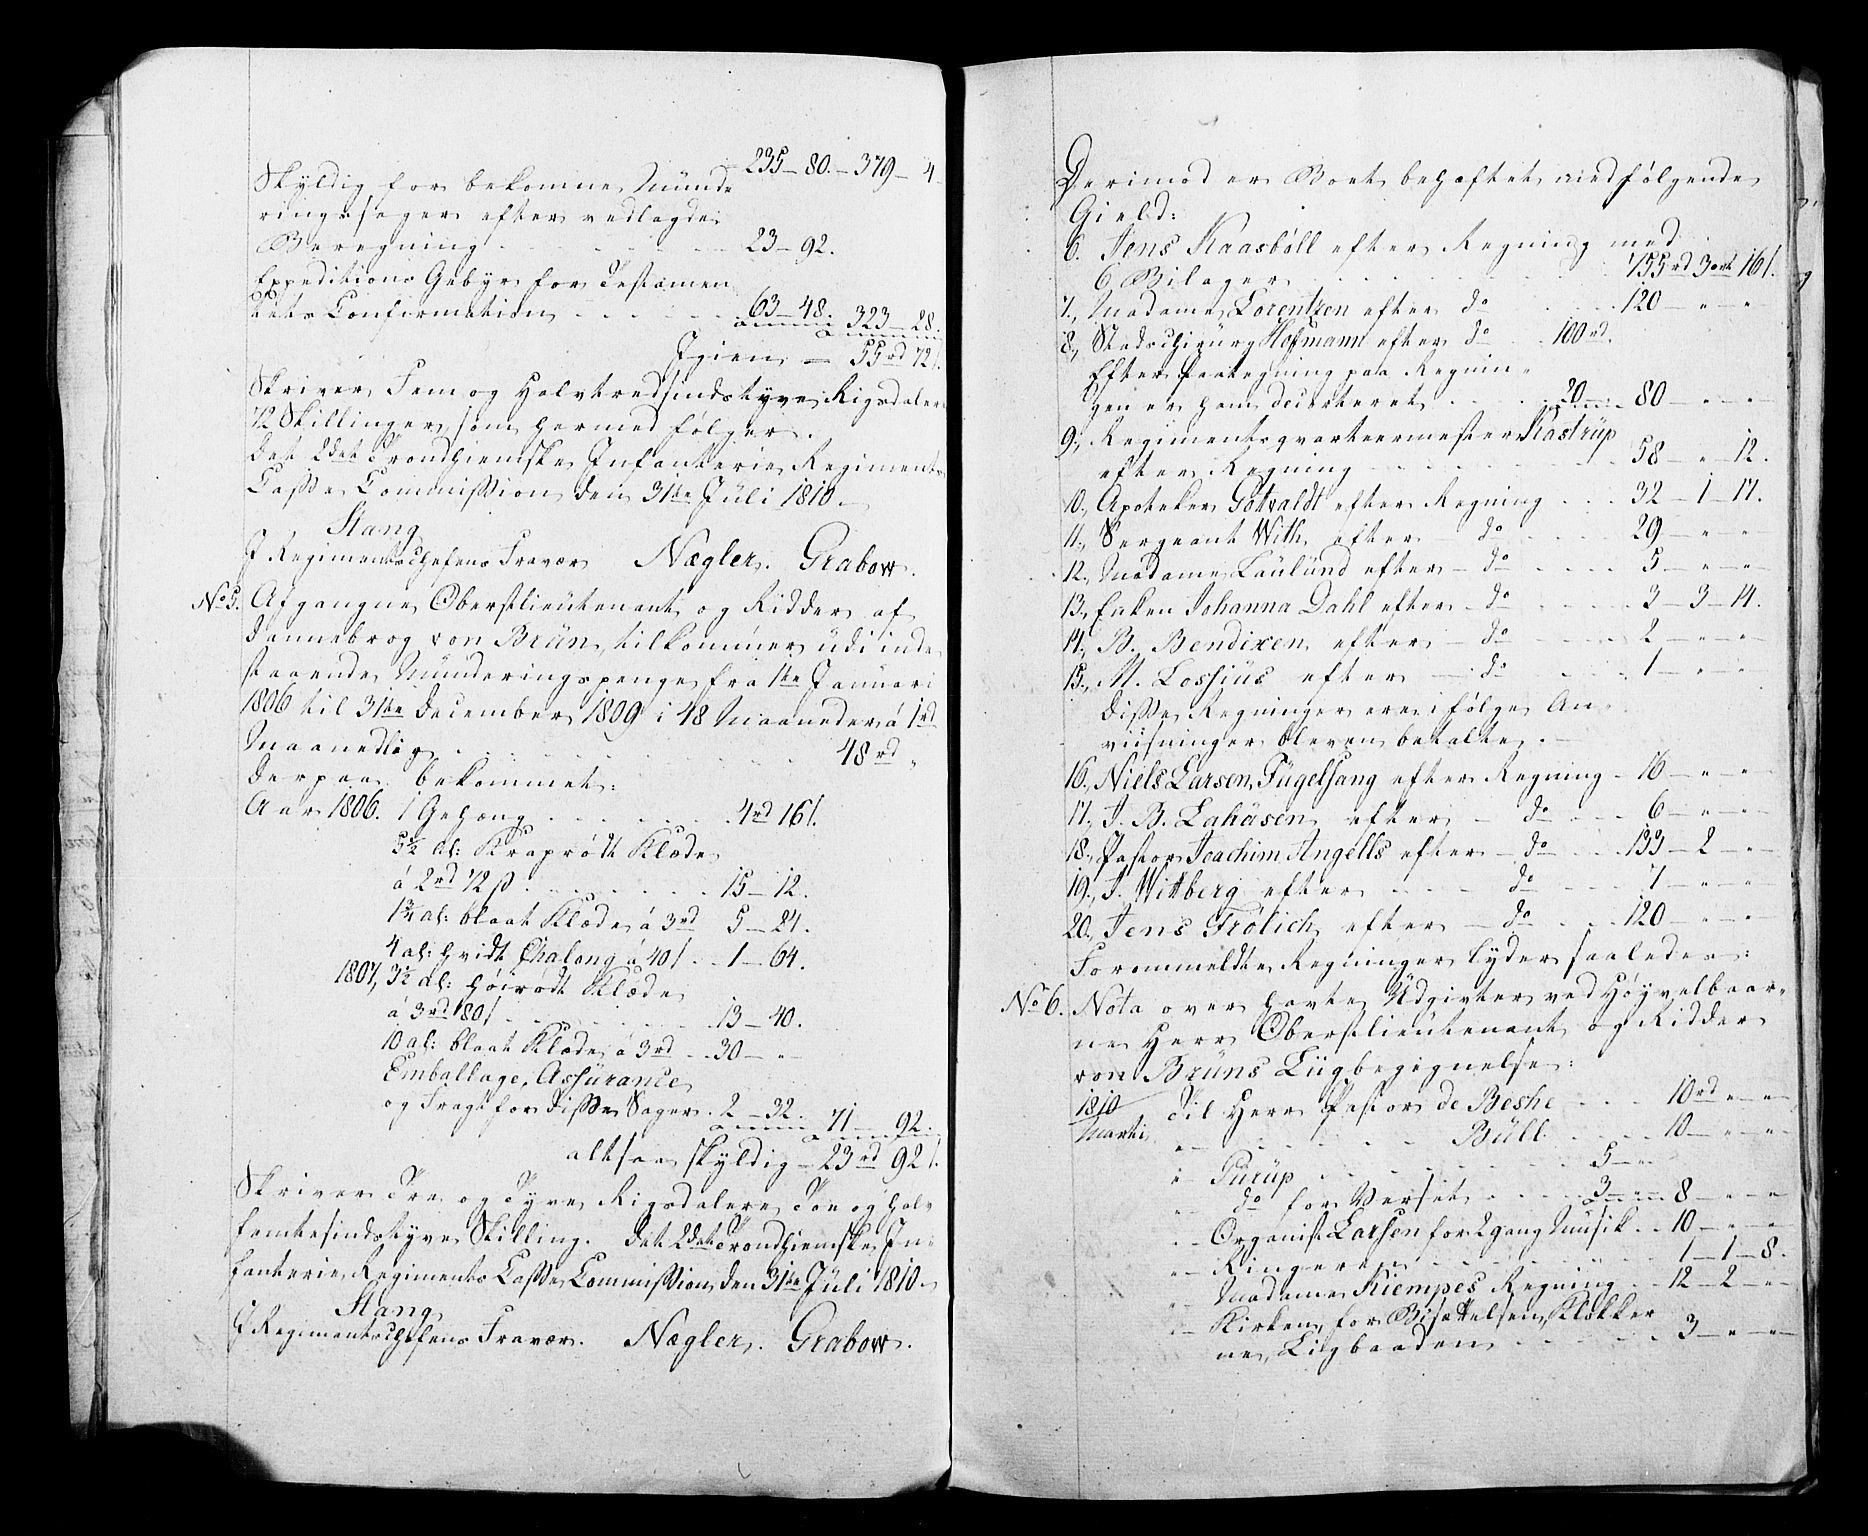 235 – 80. – 379 – 4
Skyldig for bekomne Münde
ringssager efter vedlagde
Beregning . . . . . 23 – 92.
Expeditions Gebyr for Testamen
tets Confirmation . . . . . 63 – 48. 323 – 28.
Igien – 55 rd 72 s.
Skriver Fem og Halvtredsindstyve Rigsdaler
72 Skillinger som hermed følger.
Det 2det Trondhiemske Infanterie Regiments
Casse Commission den 31te Jüli 1810.
Stang
I Regimentschefens Fravær Nægler. Grabow.
No 5. Afgangne Oberstlieutenant og Ridder af
Dannebrog von Brün, tilkommer udi inde
staaende Münderingspenge fra 1te Januari
1806 til 31te December 1809 i 48 Maaneder á 1 rd
Maanedlig . . . . . 48 rd „
Derpaa bekommet:
Aar 1806. 1 Gehæng . . . . . 4 rd 16 s.
5½ al: Kraprødt Klæde
á 2 rd 72 ß . . . . . 15 – 12.
1¾ al: blaat Klæde á 3 rd 5 – 24.
4 al: hvidt Chalong á 40 s . . 1 – 64.
1807, 3½ al: høirødt Klæde
á 3 rd 80 s . . . . . 13 – 40.
10 al: blaat Klæde á 3 rd . . 30 – „
Emballage, Assürance
og Fragt for disse Sager . 2 – 32. 71 – 92.
altsaa skyldig – 23 rd 92 s.
Skriver Tre og Tyve Rigsdalere Toe og Hal
femtesindstyve Skilling. Det 2det Trondhiemske In
fanterie Regiments Casse Commission den 31te Jüli 1810.
Stang
I Regimentschefens Fravær. Nægler. Grabow.
Derimod er Boet behæftet med følgende
Gield:
6. Jens Kaasböll efter Regning med
6 Bilager . . . . . 155 rd 3 ort 16 s.
7., Madame Lorentzen efter do . . 120 – „ – „
8., Stadschirurg Hofmann efter do . . 100 rd.
Efter Paategning paa Regnin
gen er ham decorteret . . . . 20 – „ . 80 – „ – „
9., Regimentsqvarteermester Kastrüp
efter Regning . . . . . 58 – „ – 12.
10., Apoteker Gotvaldt efter Regning . . . 32 – 1 – 17.
11., Sergeant With efter – do . . . . 29 – „ – „
12., Madame Laülund efter – do . . . . 5 – „ – „
13., Enken Johanna Dahl efter – do . . . . 3 – 3 – 14.
14., B. Bendixen efter – do . . . . 2 – „ – „
15., M. Lossius efter – do . . . . 1 – „ – „
Disse Regninger ere i følge An
viisninger bleven betalte. –
16., Niels Larsen Fügelsang efter Regning – 16 – „ – „
17., J. B. Lahüsen efter – do . . . 6 – „ – „
18., Pastor Joachim Angells efter – do . . . 133 – 2 – „
19., J. Wittberg efter . . . do . . . . 7 – „ – „
20., Jens Frölich efter – do . . . 120 – „ – „
Forommeldte Regninger lyder saaledes:
No 6. Nota over havte Udgivter ved Höyvelbaar
ne Herr Oberstlieutenant og Ridder
von Brüns Liigbegiegnelse:
1810
Marti, Til Herr Pastor de Beshe . . . 10 rd „ – „
„ – . . . . . Büll . . . . . 10 – „ – „
„ – Pürüp . . . . . 5 – „
„ – do for Verset . . . . . 3 – „ – 8 – „ – „
„ – Organist Larsen for 2 gang Müsik . . 10 – „ – „
„ – Ringeren . . . . . 1 – 1 – 8.
„ – Madame Kiempes Regning . . 12 – 2 – „
„ – Kirken, for Bisættelsen, Klokker
ne, Liigbaaden . . . . . 3 – „ – „